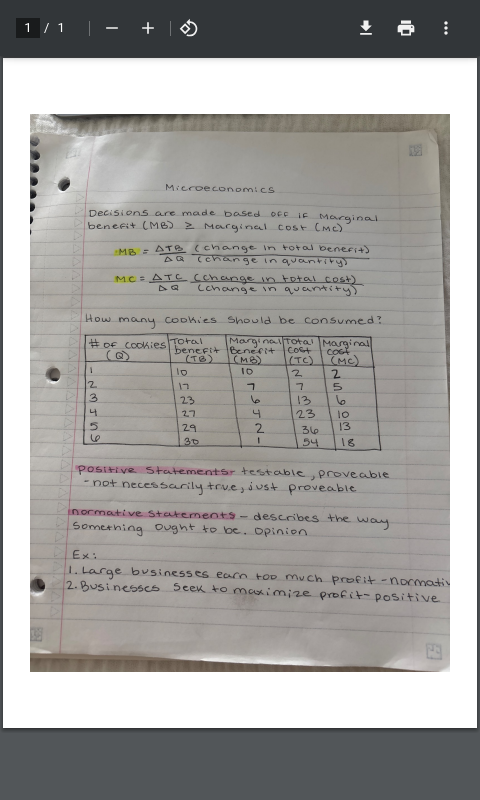 1 / 1
Microeconomics
Decisions are made based off if Marginal
benefit (MB) ≥ Marginal Cost (MC)
MB = ΔTB/ΔQ (change in total benefit)/(change in quantity)
MC = ΔTC/ΔQ (change in total cost)/(change in quantity)
How many cookies should be consumed?
# of cookies (Q) Total benefit (TB) Marginal Benefit (MB) Total Cost (TC) Marginal cost (MC)
1 10 10 2 2
2 17 7 7 5
3 23 6 13 6
4 27 4 23 10
5 29 2 36 13
6 30 1 54 18
positive statements- testable, proveable
-not necessarily true, just proveable
normative statements - describes the way
something ought to be. Opinion
Ex:
1. Large businesses earn too much profit -normativ
2. Businesses seek to maximize profit- positive